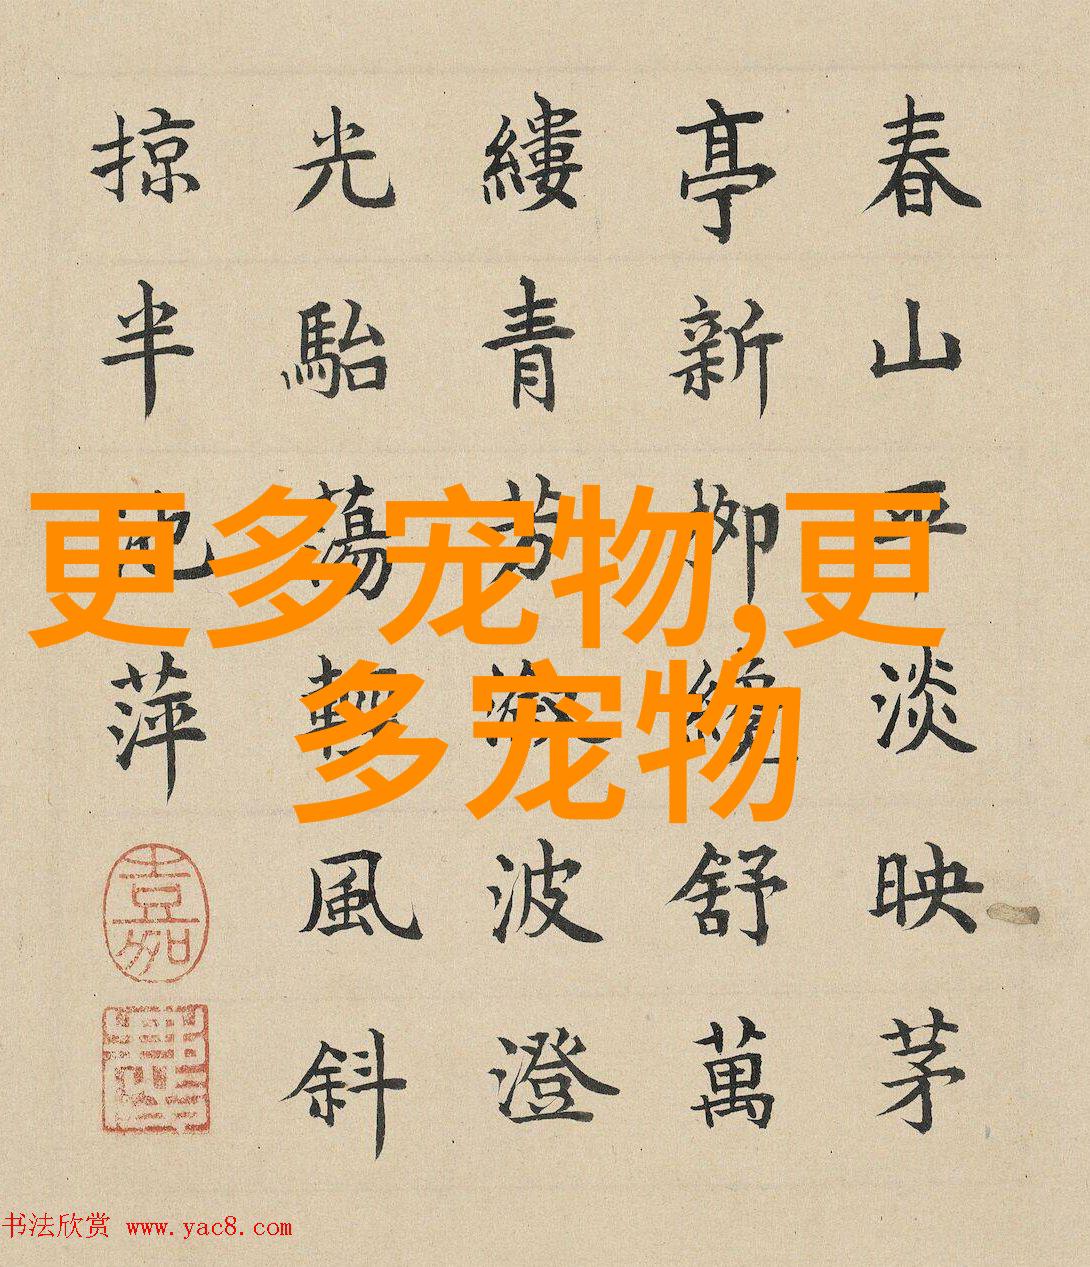 春山平淡映茅
亭新柳纔舒萬
縷青芳波澄
光駘蕩輕風斜
掠半池萍
嘉
更多宠物,更
多宠物
书法欣赏 www.yac8.com